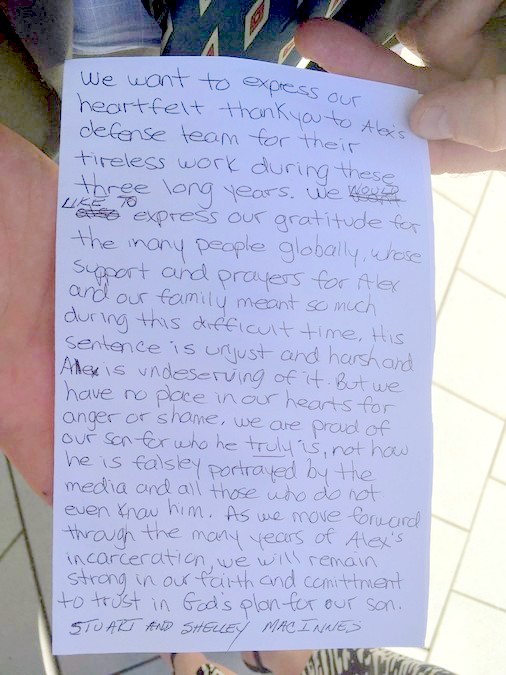 We want to express our
heartfelt thankyou to Alex's
defense team for their
tireless work during these
three long years. We WOULD
LIKE TO express our gratitude for
the many people globally, whose
support and prayers for Alex
and our family meant so much
during this difficult time. His
sentence is unjust and harsh and
Alex is undeserving of it. But we
have no place in our hearts for
anger or shame, we are proud of
our son for who he truly is, not how
he is falsley portrayed by the
media and all those who do not
even know him. As we move forward
through the many years of Alex's
incarceration, we will remain
strong in our faith and committment
to trust in God's plan for our son.
STUART AND SHELLEY MACINNES